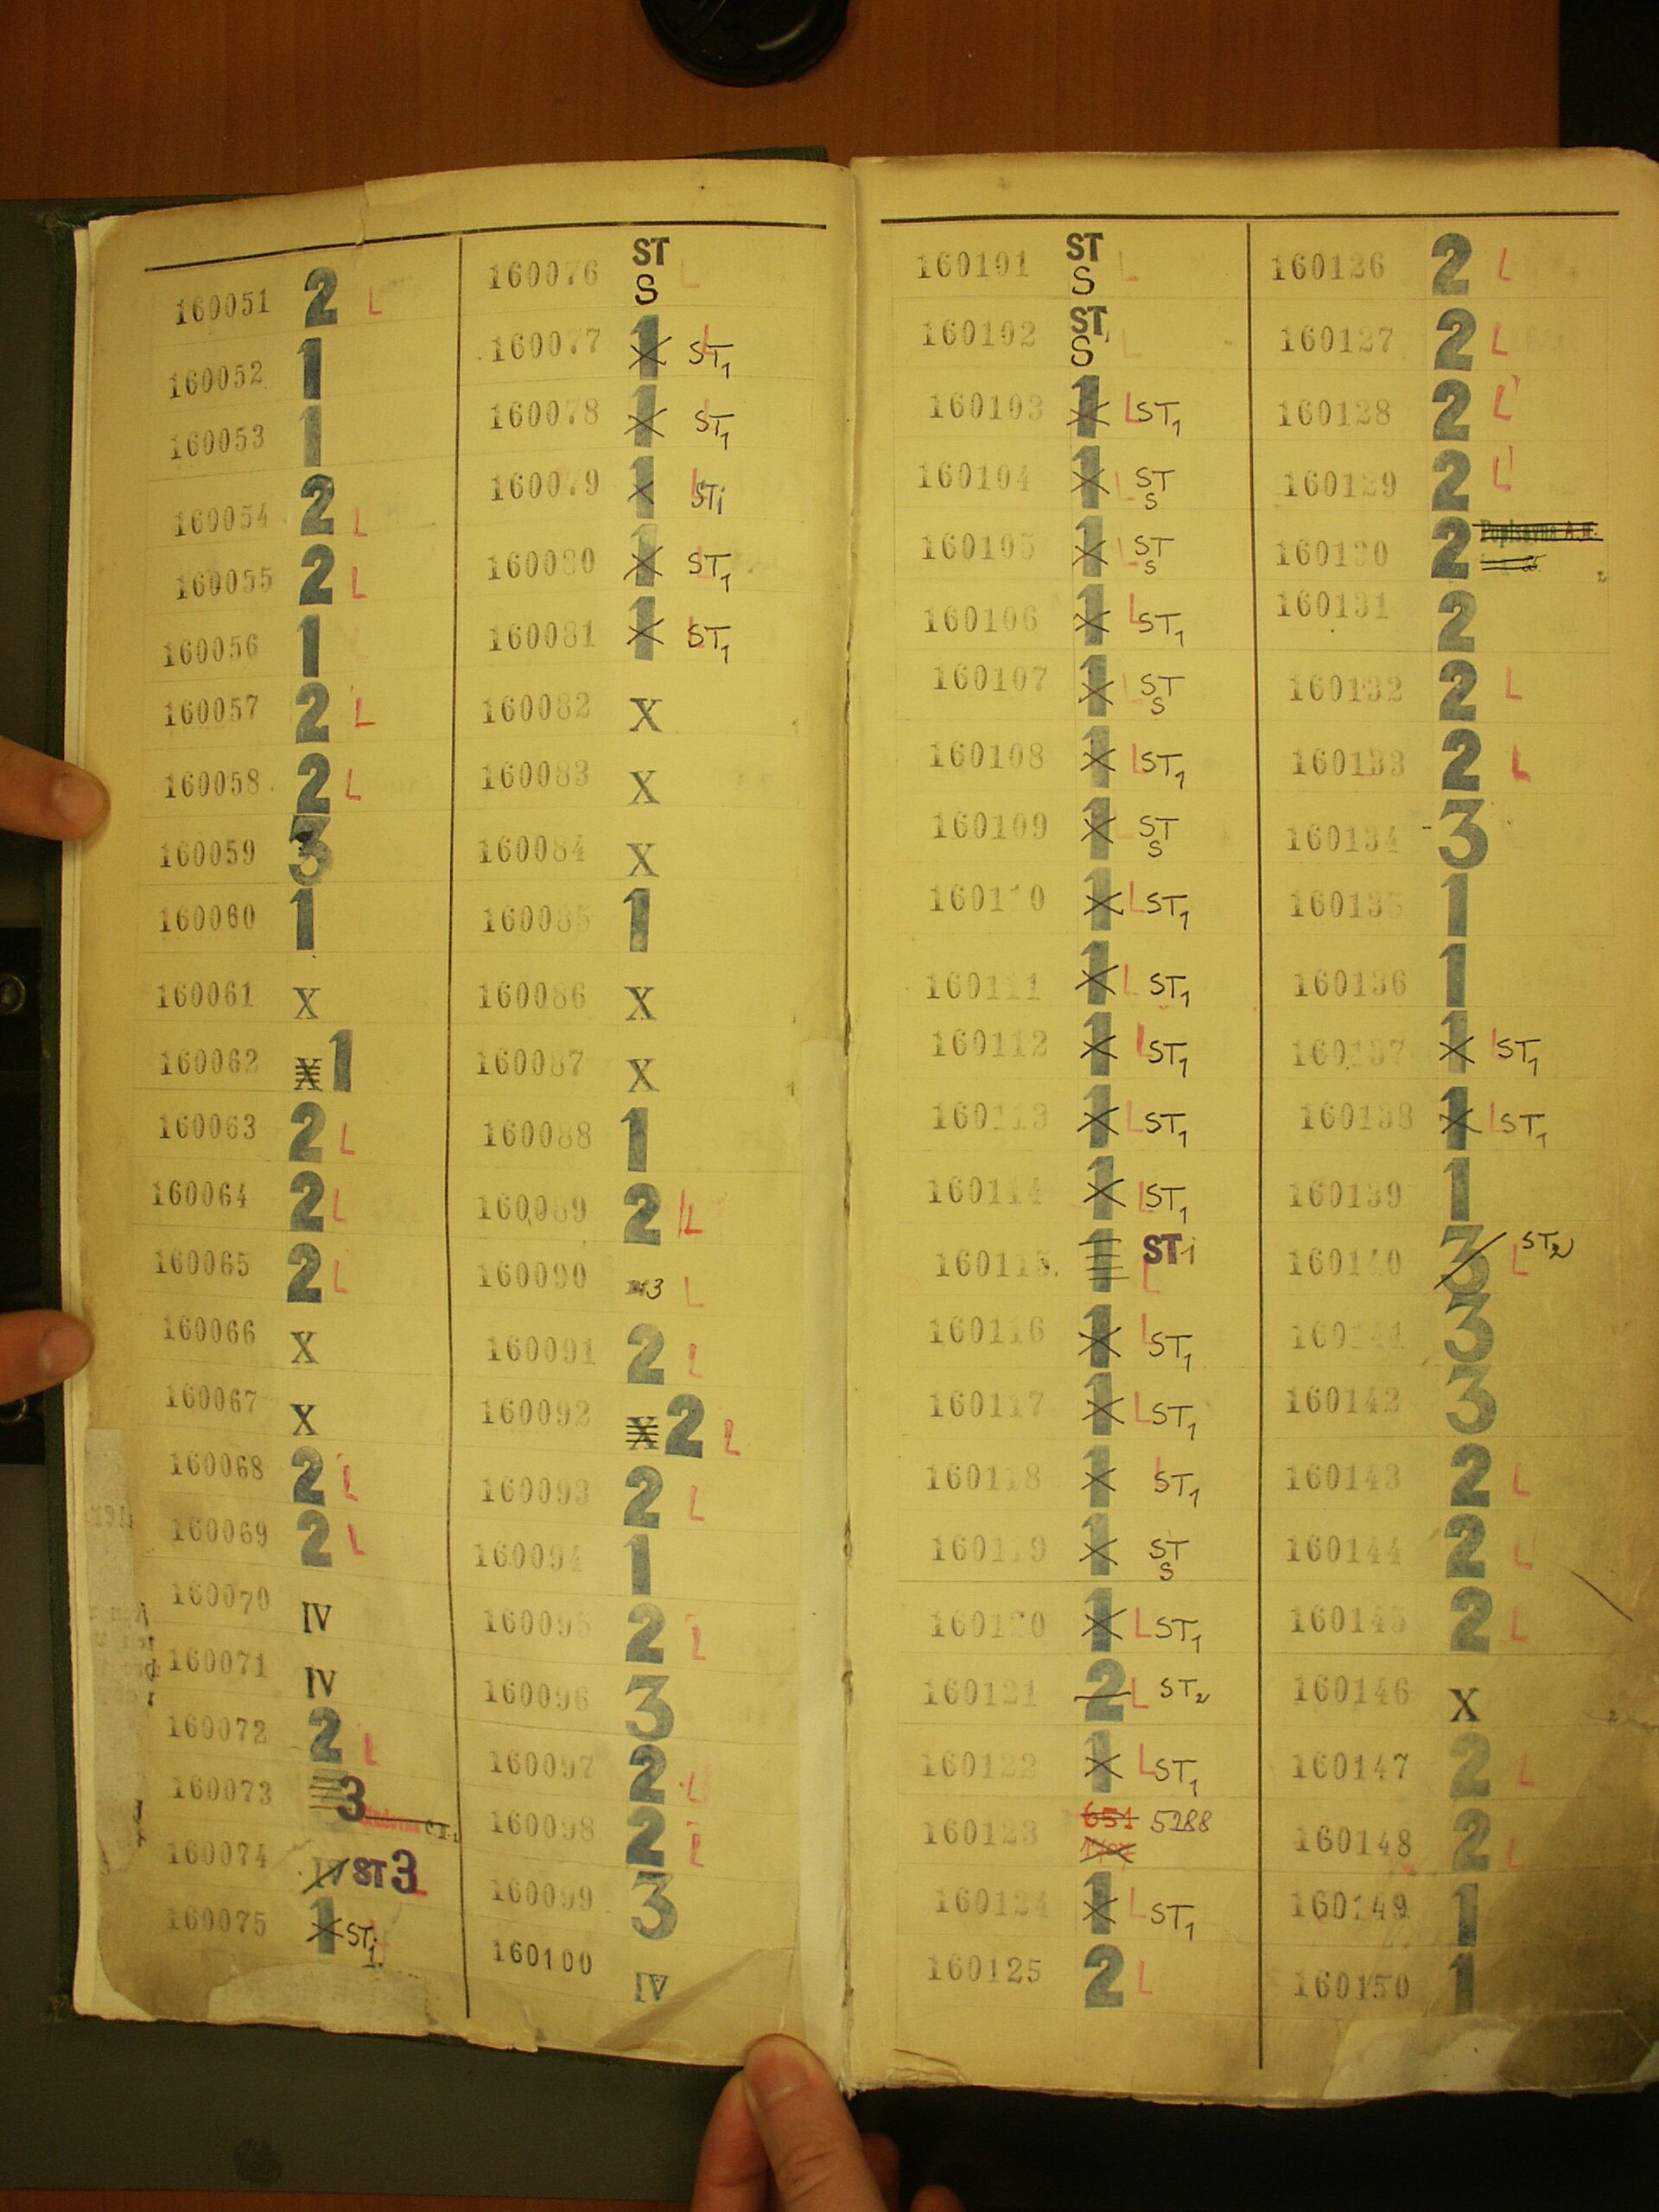 160051 2 L
160052 1
160053 1
160054 2 L
160055 2 L
160056 1
160057 2 L
160058 2 L
160059 3
160060 1
160061 X
160062 X 1
160063 2 L
160064 2 L
160065 2 L
160066 X
160067 X
160068 2 L
160069 2 L
160070 IV
160071 IV
160072 2 L
160073 3
160074 IV ST 3 L
160075 1 ST1
160076 ST S L
160077 1 L ST1
160078 1 L ST1
160079 1 L STi
160080 1 L ST1
160081 1 L ST1
160082 X
160083 X
160084 X
160085 1
160086 X
160087 X
160088 1
160089 2 L
160090 3 L
160091 2 L
160092 X 2 L
160093 2 L
160094 1
160095 2 L
160096 3
160097 2 L
160098 2 L
160099 3
160100 IV
160101 ST S L
160102 ST S L
160103 1 L ST1
160104 1 L ST S
160105 1 L ST S
160106 1 L ST1
160107 1 L ST S
160108 1 L ST1
160109 1 L ST S
160110 1 L ST1
160111 1 L ST1
160112 1 L ST1
160113 1 L ST1
160114 1 L ST1
160115 1 STi L
160116 1 L ST1
160117 1 L ST1
160118 1 L ST1
160119 1 ST S
160120 1 L ST1
160121 2 L ST2
160122 1 L ST1
160123 651 5288
160124 1 L ST1
160125 2 L
160126 2 L
160127 2 L
160128 2 L
160129 2 L
160130 2 Popisovna A.K.
160131 2
160132 2 L
160133 2 L
160134 3
160135 1
160136 1
160137 1 L ST1
160138 1 L ST1
160139 1
160140 3 L ST2
160141 3
160142 3
160143 2 L
160144 2 L
160145 2 L
160146 X
160147 2 L
160148 2 L
160149 1
160150 1